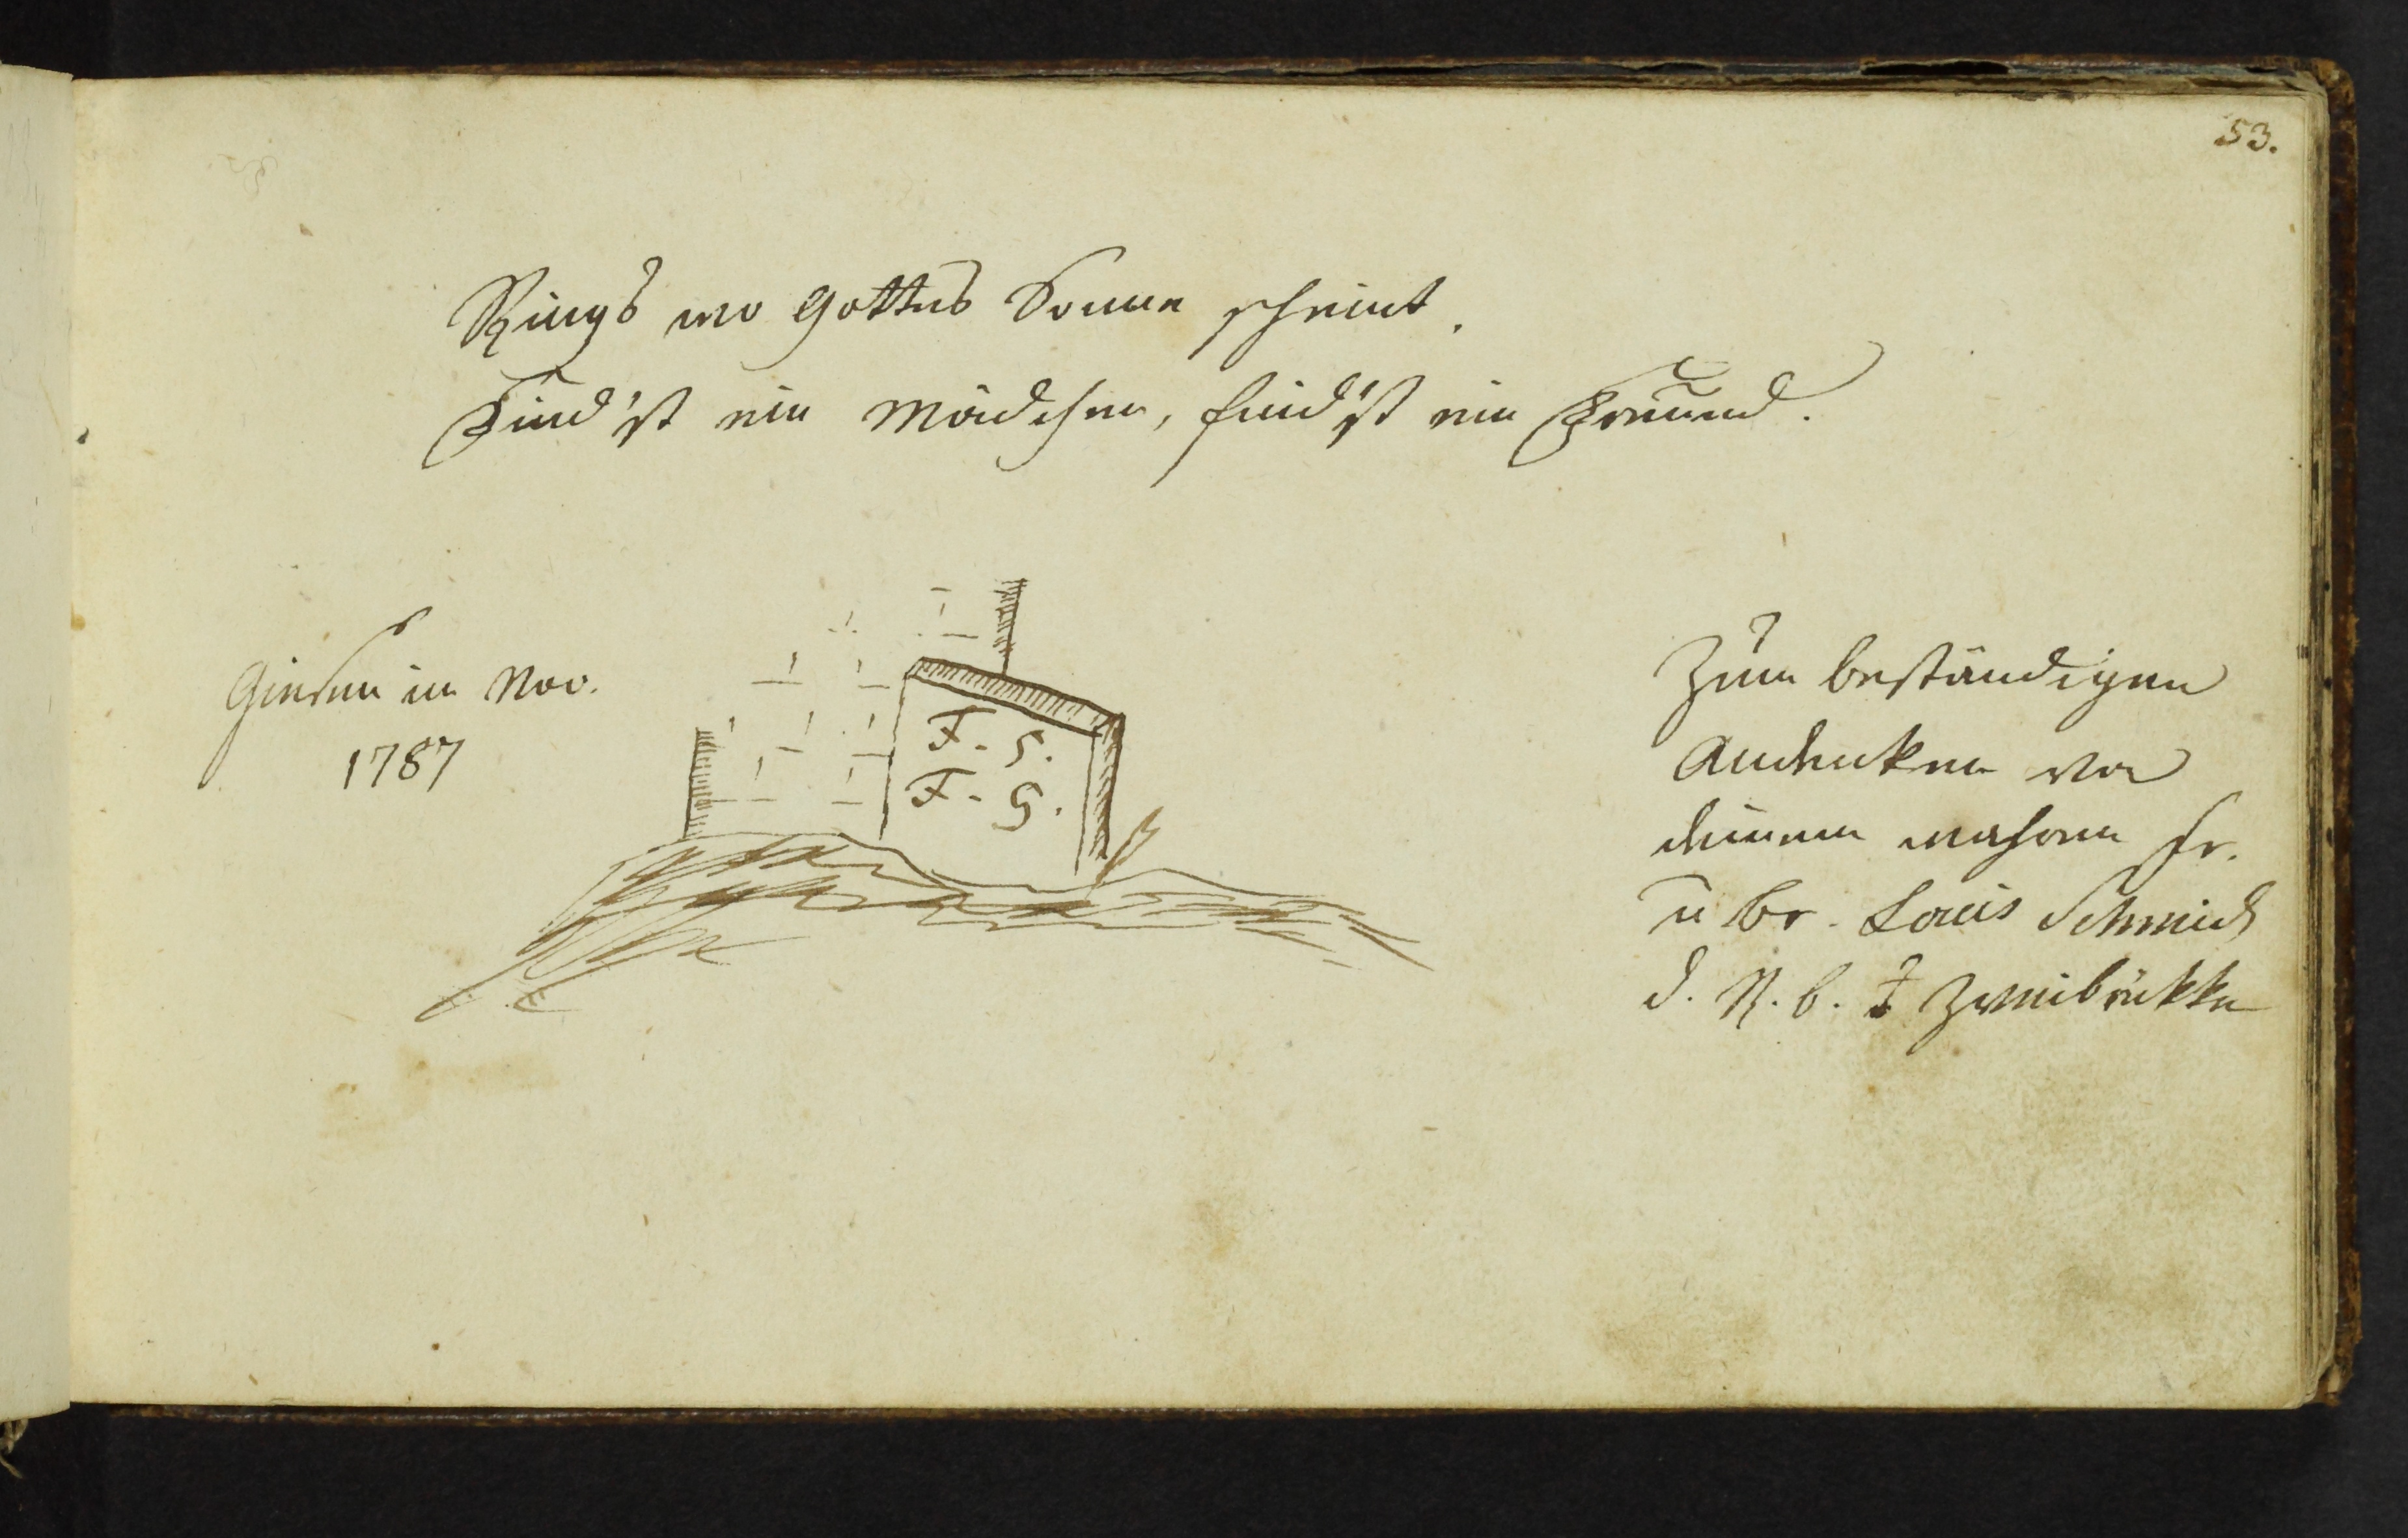 53.
Rings wo Gottes Sonne scheint,
Find'st ein Mädchen, find'st ein Freund.
Giesen im Nov.
1787
F. S.
F. G.
Zum beständigen
Andenken von
deinem wahren Fr.
u Br. Louis Schmid
d. R. b. aus Zweibrükken